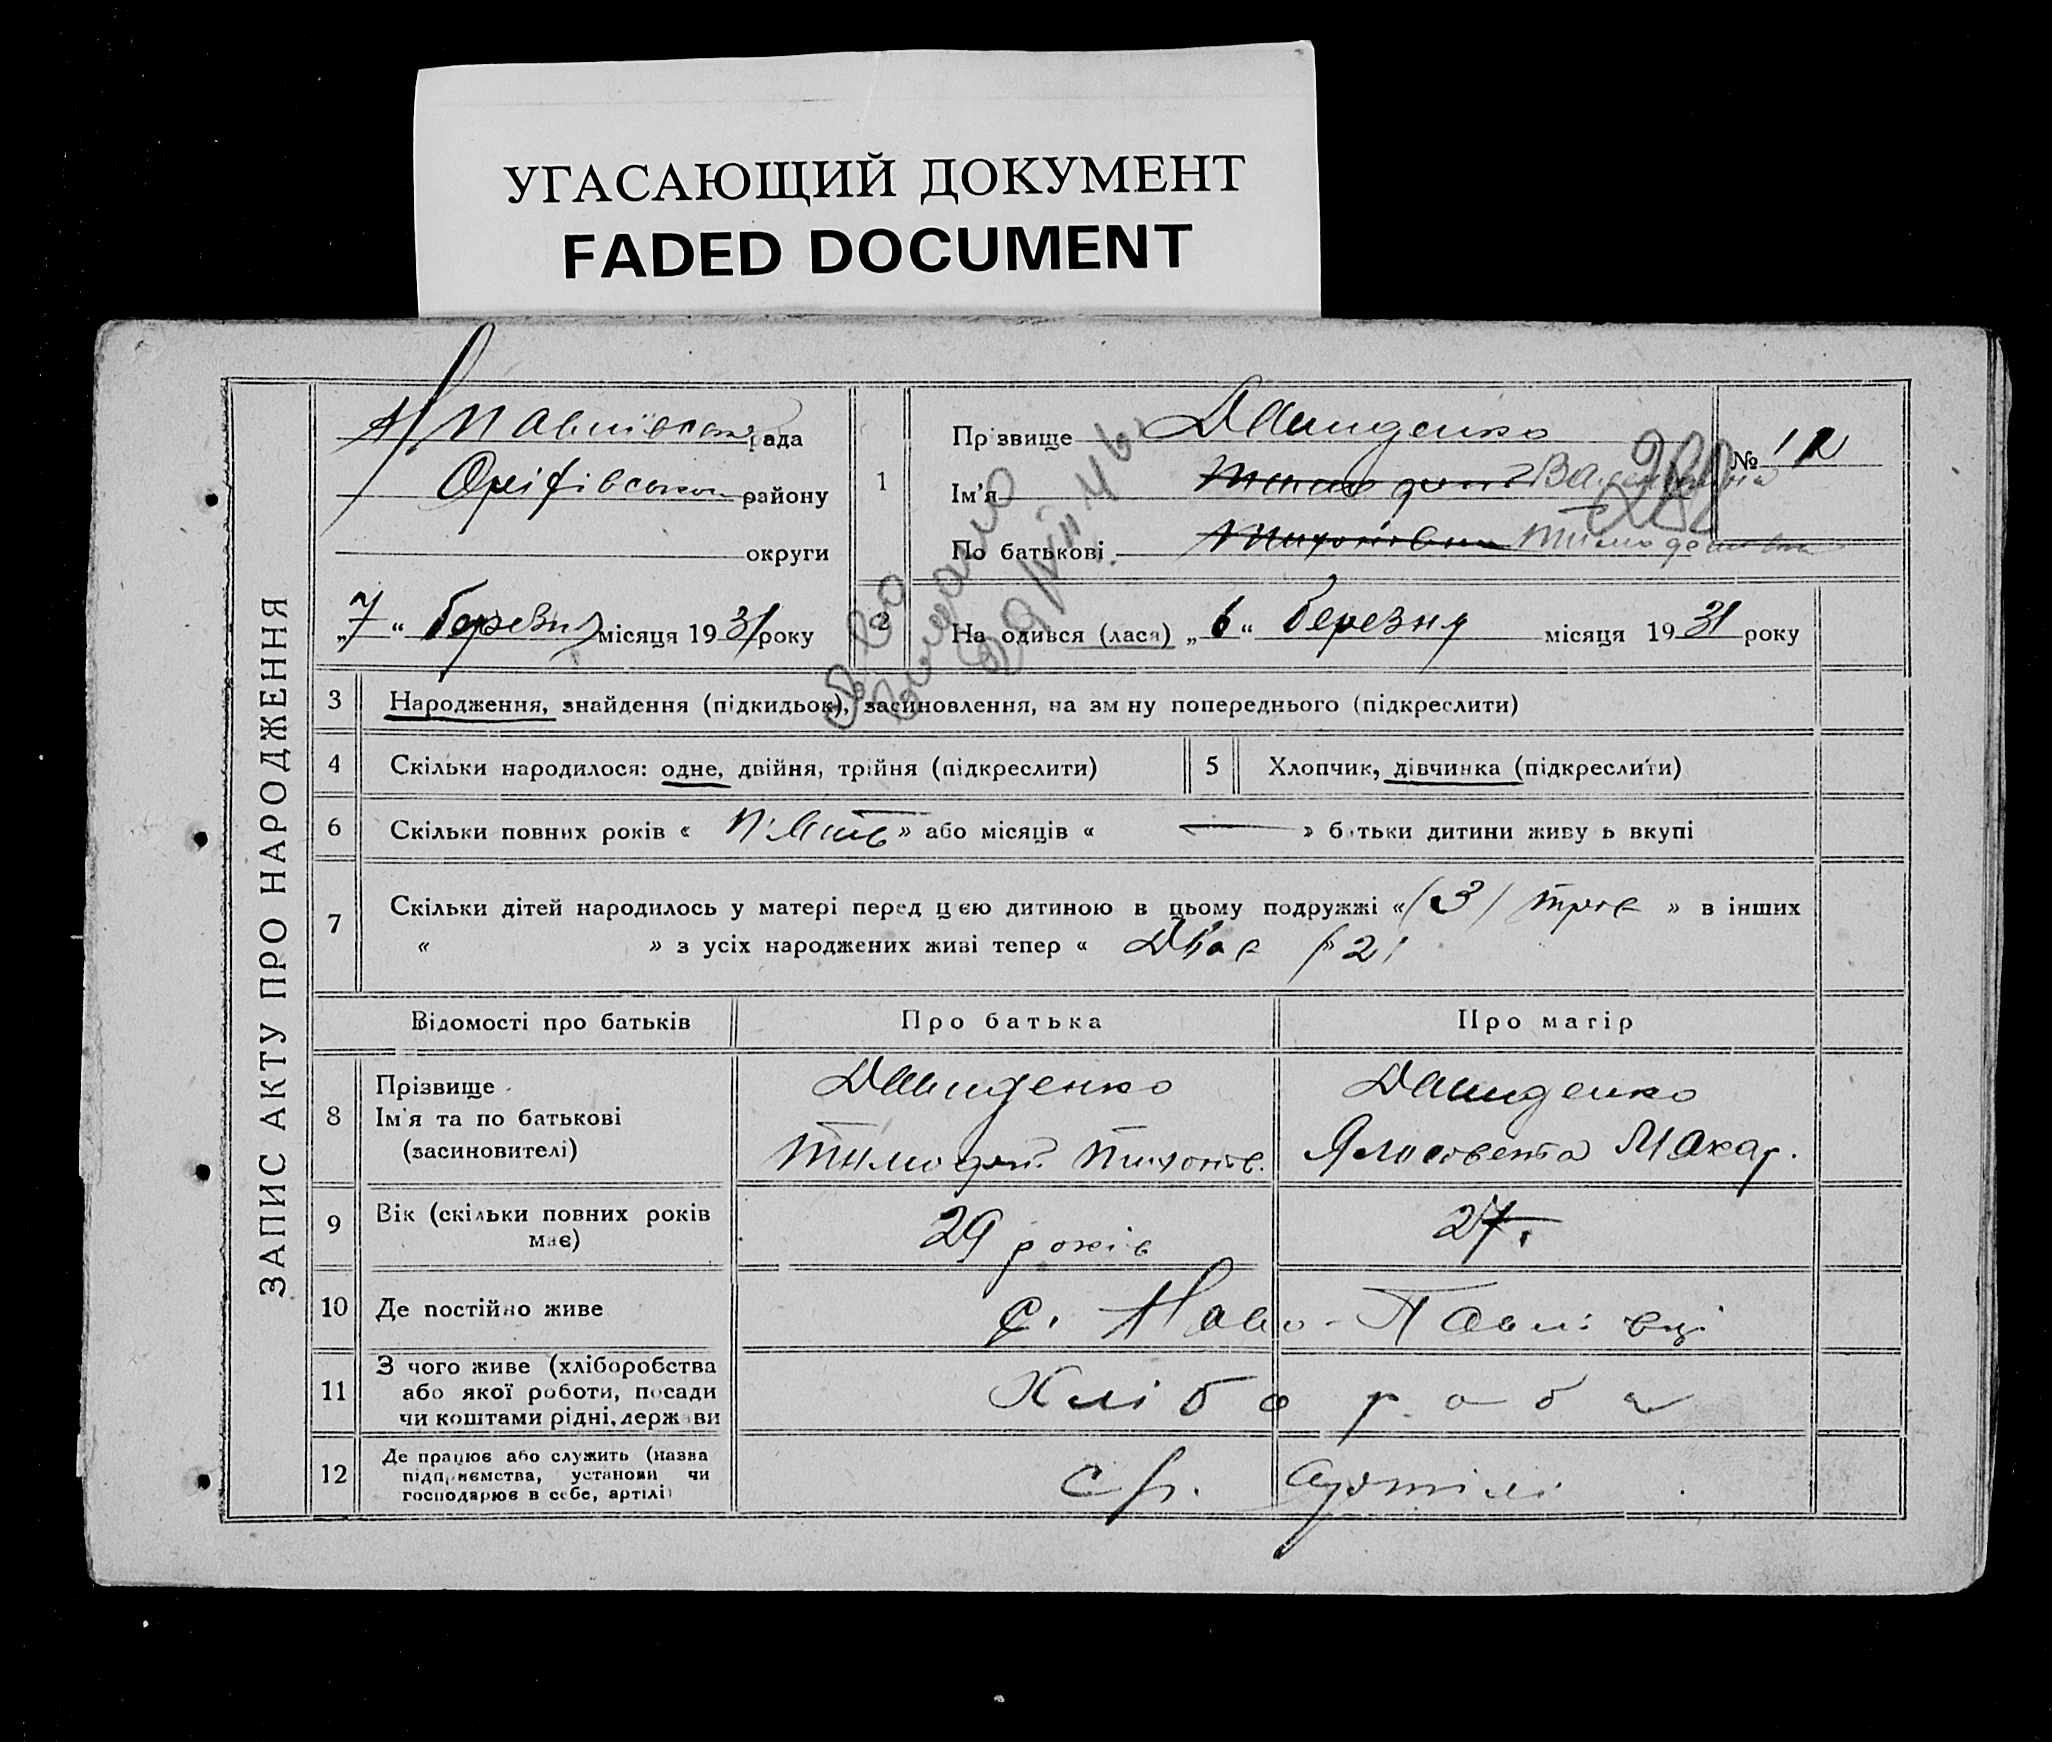 УГАСАЮЩИЙ ДОКУМЕНТ
FADED DOCUMENT
ЗАПИС АКТУ ПРО НАРОДЖЕННЯ
Н Павлівська рада
району
округи
„7“ березня місяця 1931 року
1
Прізвище Давиденко
Ім'я Валентина
По батькові Тимофіївна
№ 12
Видано
2
Народився (лася) „6“ березня місяця 1931 року
3 Народження, знайдення (підкидьок), засиновлення, на зміну попереднього (підкреслити)
4 Скільки народилося: одне, двійня, трійня (підкреслити)
5 Хлопчик, дівчинка (підкреслити)
6 Скільки повних років « п'ять » або місяців « — » батьки дитини живуть вкупі
7 Скільки дітей народилось у матері перед цією дитиною в цьому подружжі « (3) троє » в інших
« » з усіх народжених живі тепер « Двоє (2)
Відомості про батьків Про батька Про матір
8 Прізвище Давиденко Давиденко
Ім'я та по батькові
(засиновителі) Тимофій Тихонов. Ялисовета Макар.
9 Вік (скільки повних років
має) 29 років 27.
10 Де постійно живе с. Ново-Павлівці
11 З чого живе (хліборобства
або якої роботи, посади
чи коштами рідні, держави Хлібороби
12 Де працює або служить (назва
підприємства, установи чи
господарює в себе, артілі) с/г. артілі